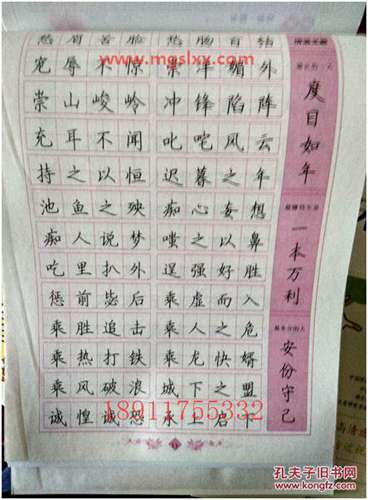 愁眉苦脸 热肠百结
www.mgslxx.com
宠辱不惊 崇洋媚外
崇山峻岭 冲锋陷阵
充耳不闻 叱咤风云
持之以恒 迟暮之年
池鱼之殃 痴心妄想
痴人说梦 嗤之以鼻
吃里扒外 逞强好胜
惩前毖后 乘虚而入
乘胜追击 乘人之危
乘热打铁 乘龙快婿
乘风破浪 城下之盟
诚惶诚恐 承上启下
18911755332
度日如年
一本万利
安份守己
孔夫子旧书网